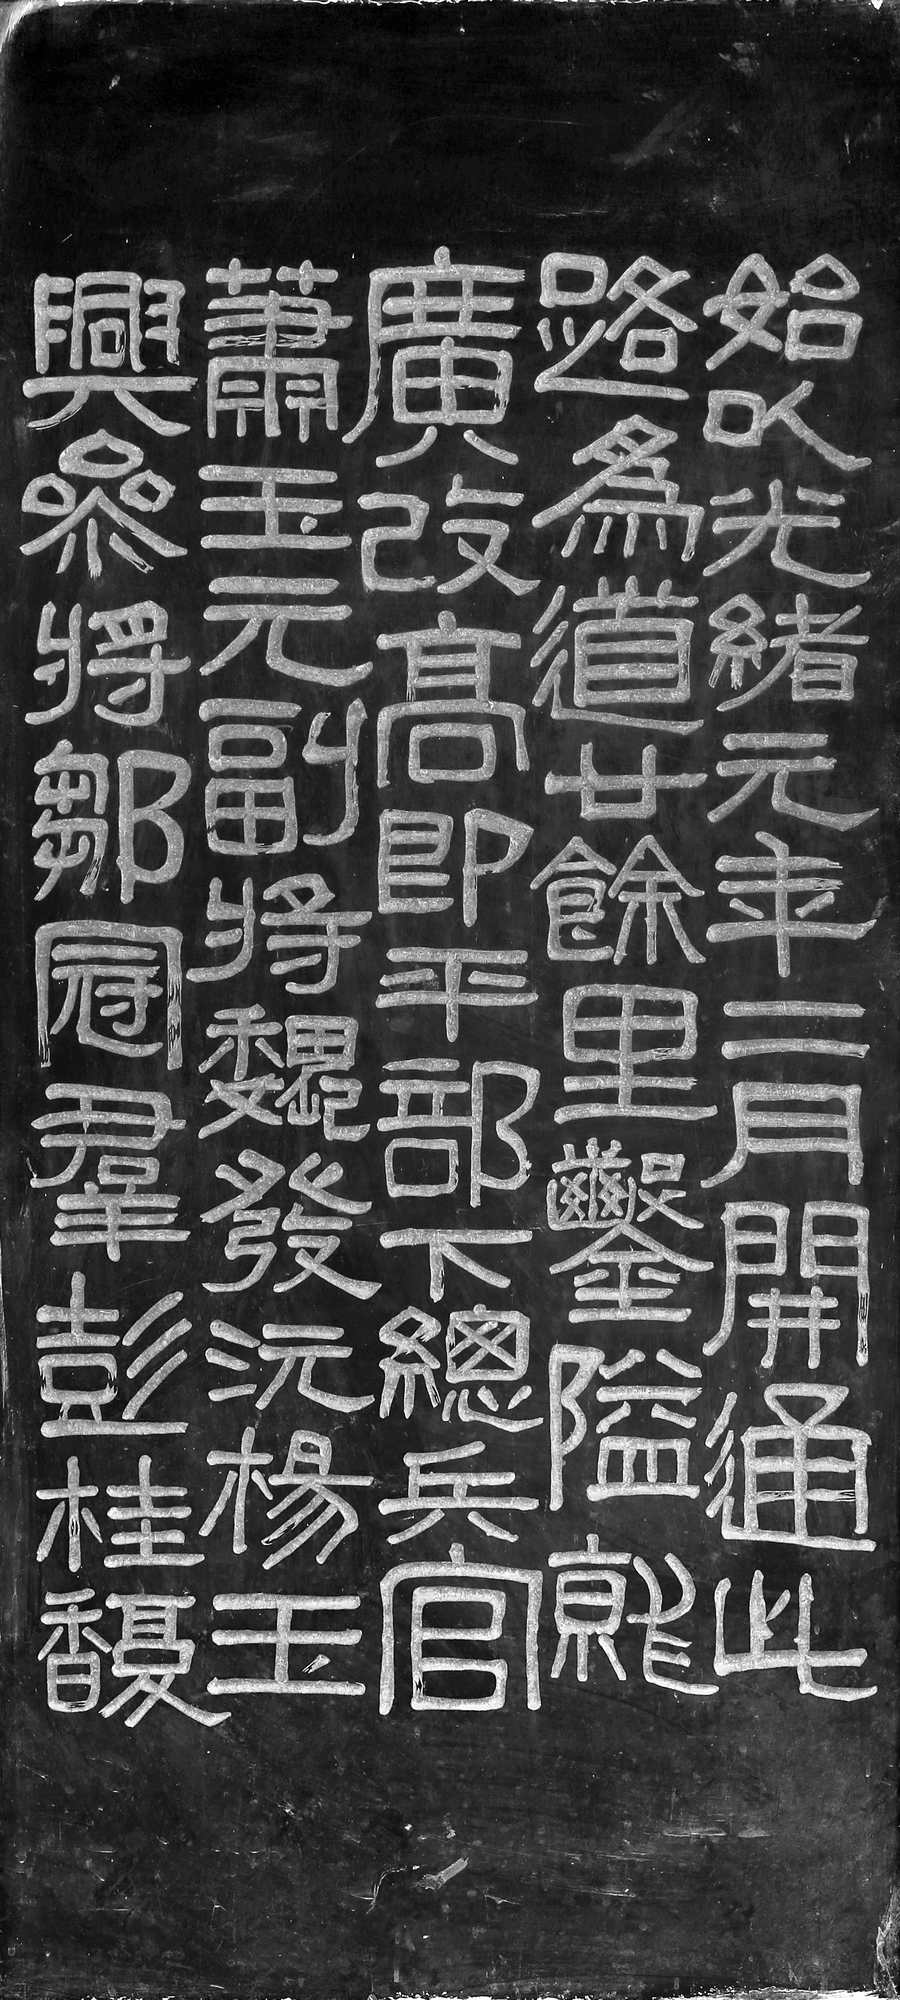 始以光緒元年二月開通此
路爲道廿餘里鑿隘就
廣改高即平部下總兵官
蕭玉元副將魏發沅楊玉
興參將鄒冠羣彭桂馥